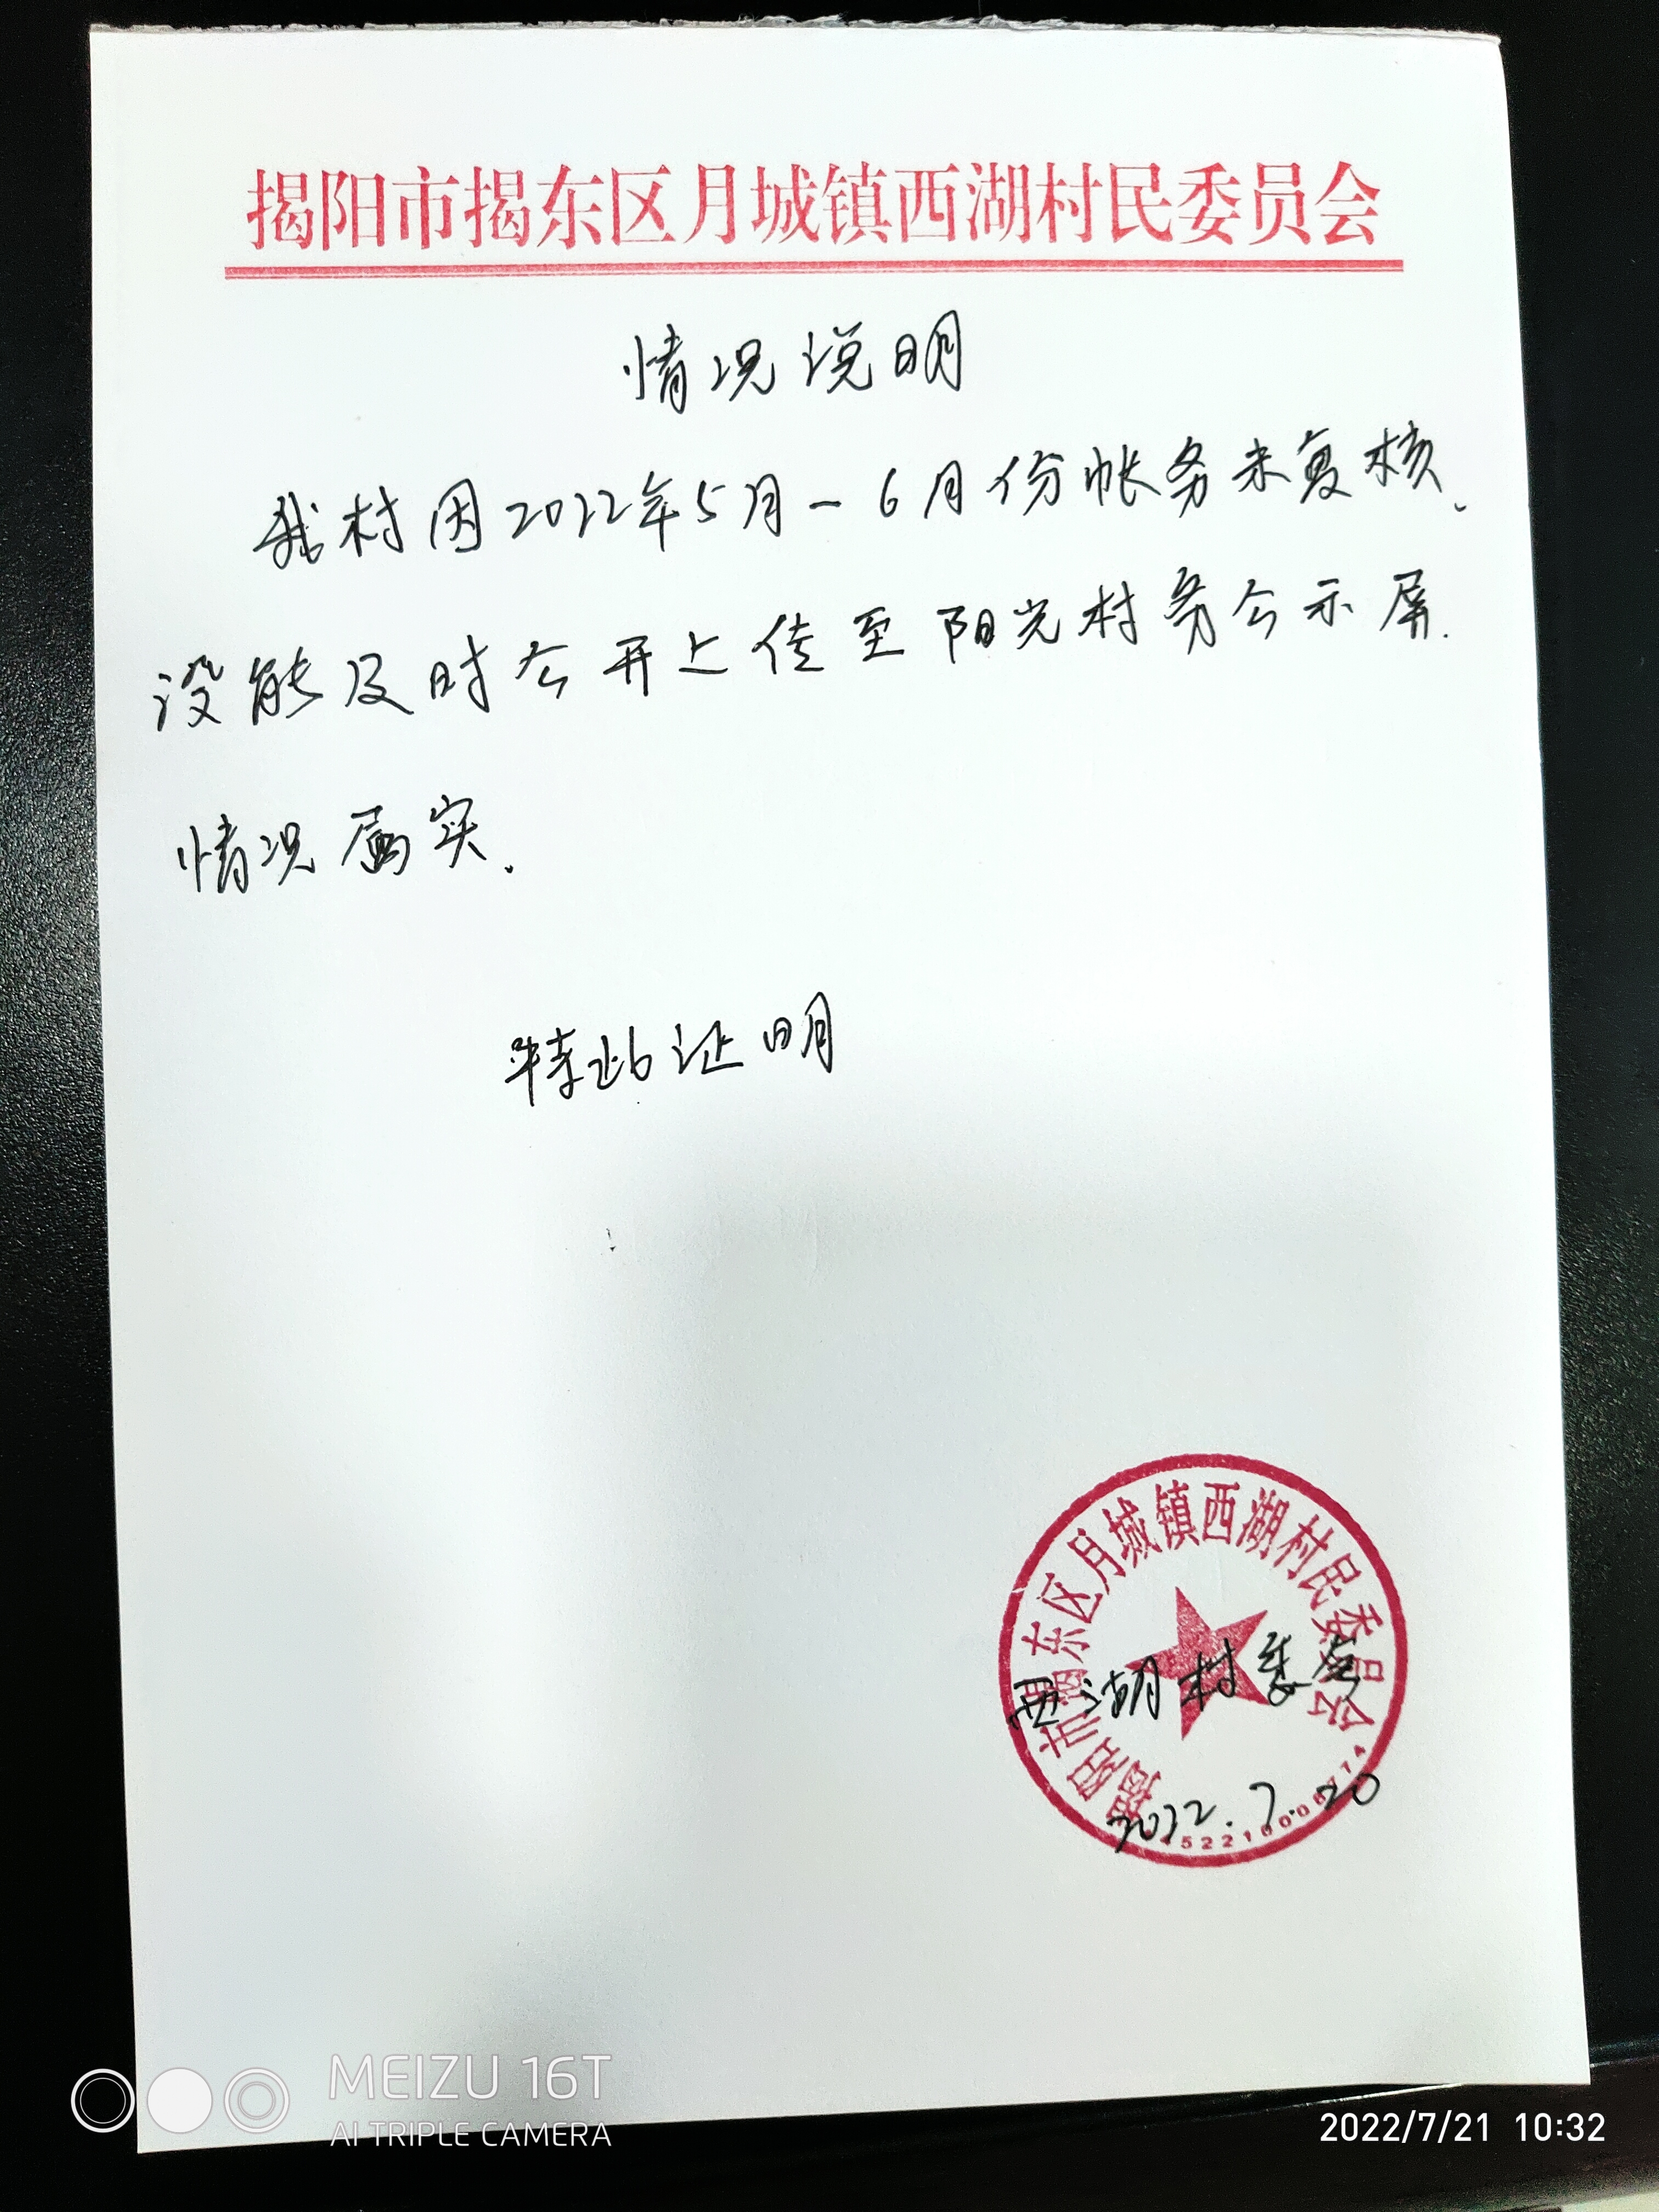 揭阳市揭东区月城镇西湖村民委员会
情况说明
我村因2022年5月-6月份帐务未复核、
没能及时公开上传至阳光村务公示屏.
情况属实.
特此证明
揭阳市揭东区月城镇西湖村民委员会
西湖村委会
2022.7.20
MEIZU 16T
AI TRIPLE CAMERA
2022/7/21 10:32